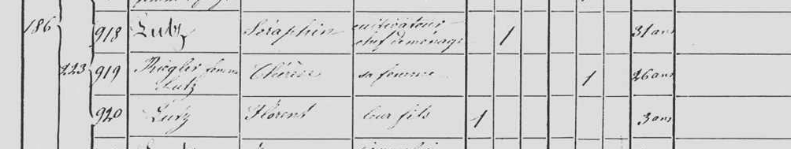 186
918 Lutz Séraphin cultivateur
chef de ménage 1 31 ans
223 919 femme Thérèse sa femme 1 26 ans
Lutz
920 Lutz Florent leur fils 1 3 ans